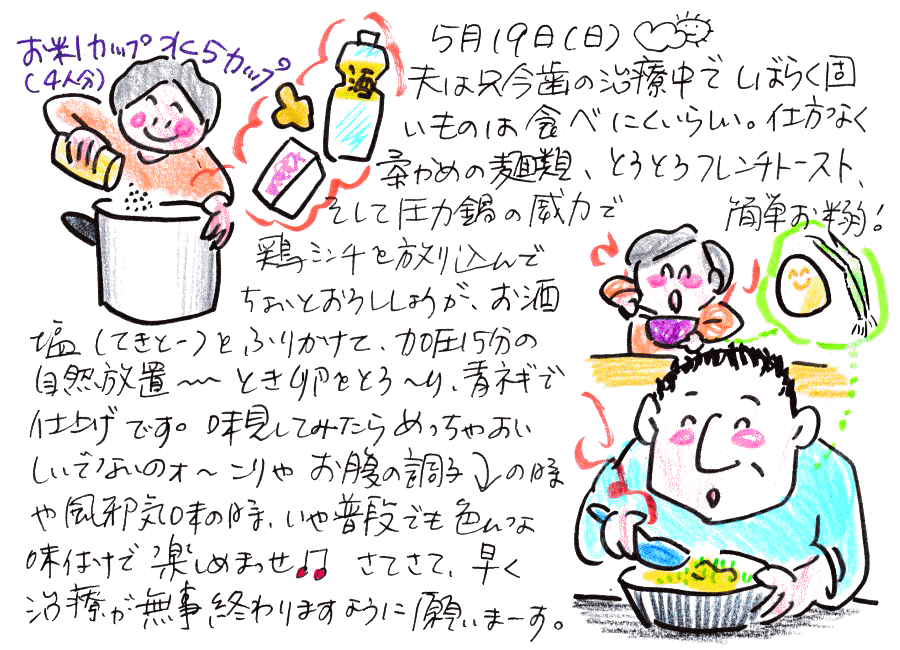 お米1カップ 水5カップ
(4人分)
酒
5月19日(日)
夫は只今歯の治療中でしばらく固
いものは食べにくいらしい。仕方なく
柔かめの麺類、とろとろフレンチトースト、
そして圧力鍋の威力で
簡単お粥!
鶏ミンチを放り込んで
ちょいとおろししょうが、お酒
塩(てきとー)とふりかけて、加圧15分の
自然放置〜〜とき卵をとろ〜り、青ネギで
仕上げです。味見してみたらめっちゃおい
しいでないのォ〜こりゃお腹の調子↓の時
や風邪気味の時、いや普段でも色んな
味付けで楽しめませ♫ さてさて、早く
治療が無事終わりますように願いまーす。